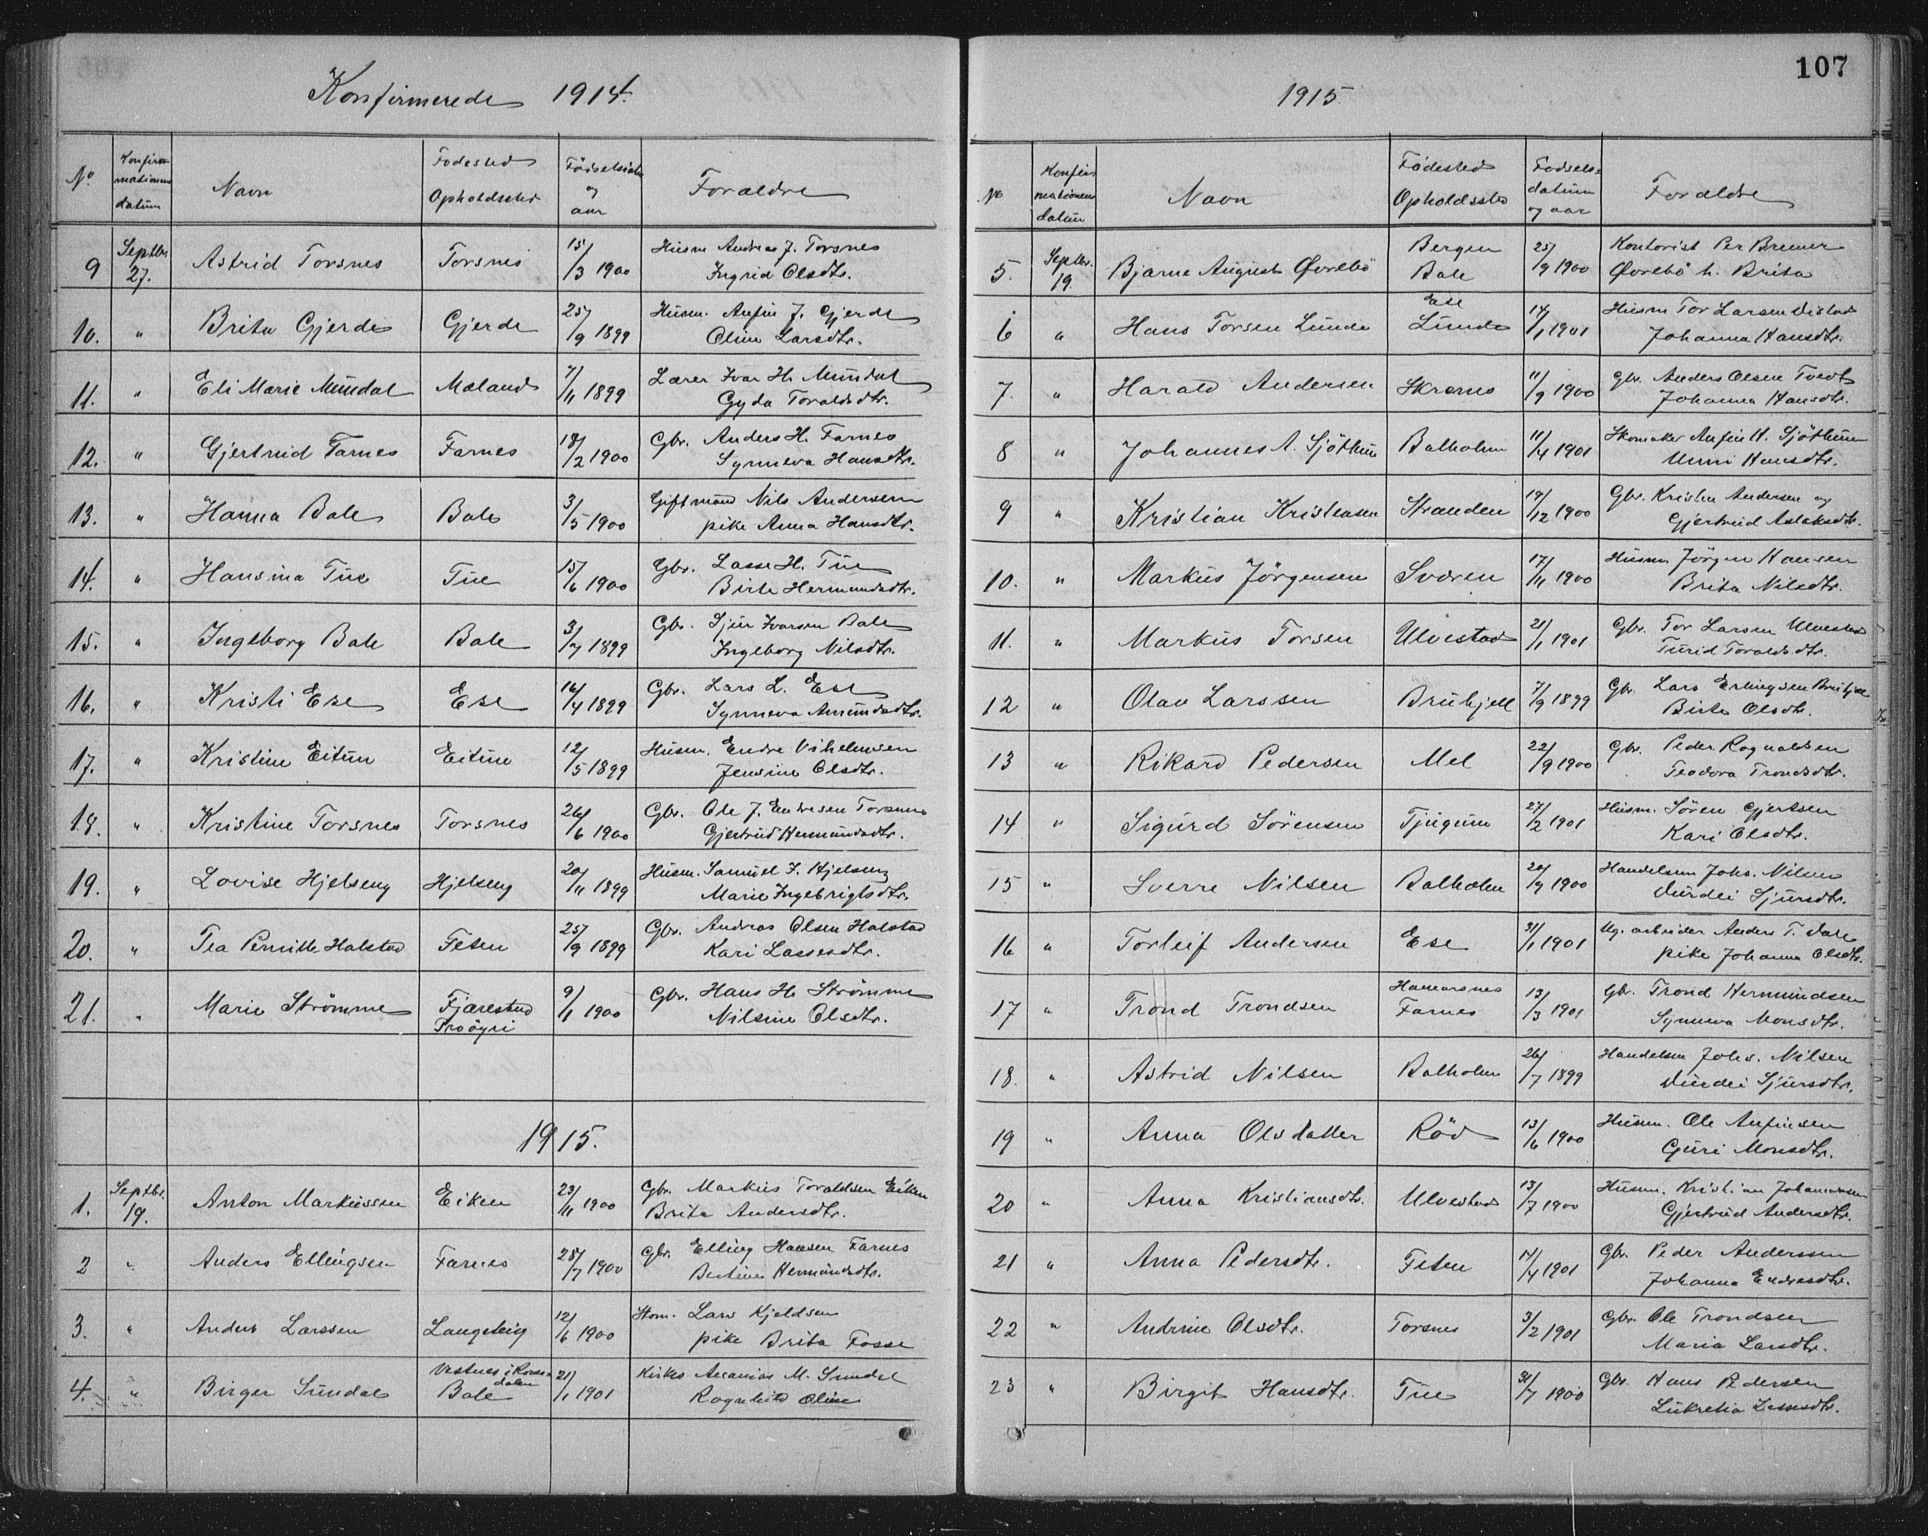 Konfirmerede 1914.
No. Konfirmationens datum Navn Fødested Opholdssted Fødselsdatum og aar Forældre
9 Septbr. 27. Astrid Torsnes Torsnes 15/3 1900 Husm Andreas J. Torsnes
Ingrid Olsdtr.
10. " Brita Gjerde Gjerde 25/9 1899 Husm. Anfin J. Gjerde
Oline Larsdtr.
11. " Eli Marie Mundal Mæland 7/11 1899 Lærer Ivar H. Mundal
Gyda Toraldsdtr.
12. " Gjertrud Farnes Farnes 18/2 1900 Gbr. Anders H. Farnes
Synneva Hansdtr.
13. " Hanna Bale Bale 3/5 1900 Giftmand Nils Andersen
pike Anna Hansdtr.
14. " Hansina Tue Tue 15/6 1900 Gbr. Lasse H. Tue
Birte Hermundsdtr.
15. " Ingeborg Bale Bale 3/7 1899 Gbr. Sjur Ivarsen Bale
Ingeborg Nilsdtr.
16. " Kristi Ese Ese 16/4 1899 Gbr. Lars L. Ese
Synneva Amundsdtr.
17. " Kristine Eitun Eitun 12/5 1899 Husm. Endre Vihelmsen
Jensine Olsdtr.
18. " Kristine Torsnes Torsnes 26/6 1900 Gbr. Ole J. Endresen Torsnes
Gjertrud Hermundsdtr.
19. " Lovise Hjelseng Hjelseng 20/11 1899 Husm. Samuel J. Hjelseng
Marie Ingebrigtsdtr.
20. " Tea Pernille Halstad Feten 25/9 1899 Gbr. Andreas Olsen Halstad
Kari Lassesdtr.
21. " Marie Strømme Fjærestad 9/1 1900 Gbr. Hans H. Strømme
Nilsine Olsdtr.
1915.
1. Septbr. 19. Anton Markussen Eiken 23/11 1900 Gbr. Markus Toraldsen Eiken
Brita Andersdtr.
2 " Anders Ellingsen Farnes 28/7 1900 Gbr. Elling Hansen Farnes
Bertine Hermundsdtr.
3. " Anders Larssen Langeteig 12/6 1900 Lars Kjeldsen
pike Brita Fosse
4. " Birger Sundal Bale 21/1 1901 M. Sundal
Oline
107
1915
No Konfirmationens datum Navn Fødested Opholdssted Fødselsdatum og aar Forældre
5. Septbr. 19. Bjarne August Øvrebö Bergen Bale 25/9 1900 Kontorist Per Bremer
Øvrebö h. Brita
6 " Hans Torsen Lunde Ese Lunde 14/1 1901 Husm Tor Larsen
Johanna Hansdtr.
7. " Harald Andersen 11/9 1900 Gbr. Anders Olsen Tvedt
Johanna Hansdtr.
8 " Johannes A. Sjøthun Balholm 11/4 1901 Skomaker Anfin H. Sjøthun
Unni Hansdtr.
9 " Kristian Kristensen Stranden 19/12 1900 Gbr. Kristen Andersen og
Gjertrud Aslaksdtr.
10. " Markus Jørgensen Sværen 17/11 1900 Husm. Jørgen Hansen
Brita Nilsdtr.
11. " Markus Torsen Ulvestad 21/1 1901 Gbr. Tor Larsen Ulvestad
Turid Toraldsdtr.
12 " Olav Larssen Bruhjell 7/9 1899 Gbr. Lars Erlingsen Bruhjell
Birte Olsdtr.
13 " Rikard Pedersen Mel 22/9 1900 Gbr. Peder Ragnaldsen
Teodora Trondsdtr.
14 " Sigurd Sørensen Tjugum 27/2 1901 Husm. Søren Gjertsen
Kari Olsdtr.
15 " Sverre Nilsen Balholm 20/9 1900 Handelsm Johs. Nilsen
Durdei Sjursdtr.
16 " Torleif Andersen Ese 31/1 1901 Ug. arbeider Anders T. Dale
pike Johanna Olsdtr.
17 " Trond Trondsen Hamarsnes Farnes 13/3 1901 Gbr. Trond Hermundsen
Synneva Monsdtr.
18. " Astrid Nilsen Balholm 26/7 1899 Handelsm Johs. Nilsen
Durdei Sjursdtr.
19 " Anna Olsdatter Rød 13/6 1900 Husm. Ole Anfinsen
Guri Monsdtr.
20 " Anna Kristiansdtr. Ulvestad 13/7 1900 Husm. Kristian Johannessen
Gjertrud Andersdtr.
21 " Anna Pedersdtr. Feten 17/4 1901 Gbr. Peder Anderssen
Johanna Endresdtr.
22 " Andrine Olsdtr. Torsnes 3/2 1901 Gbr. Ole Trondsen
Maria Larsdtr.
23 " Birgit Hansdtr. Tue 31/7 1900 Gbr. Hans Pedersen
Lukretia Lassesdtr.